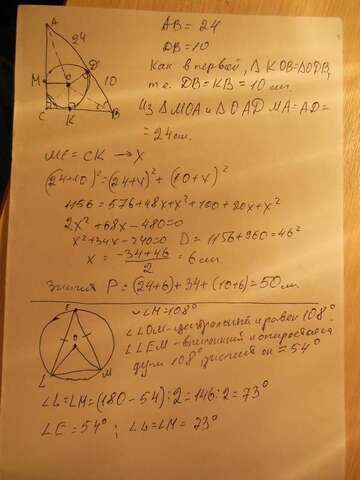 A
24
D
10
M
O
C
K
B
AB = 24
DB = 10
Как в первой, Δ KOB=ΔODB,
т.е. DB=KB=10 см.
Из ΔMOA и ΔOAD MA=AD=
=24см.
MC = CK → x
(24+10)²=(24+x)²+(10+x)²
1156=576+48x+x²+100+20x+x²
2x²+68x-480=0
x²+34x-240=0 D=1156+960=46²
x = -34+46/2 = 6 см.
Значит P=(24+6)+34+(10+6)=50
E
O
L
M
108°
∠LOM-центральный и равен 108°.
∠LEM-вписанный и опирается
дугу 108°, значит он =54°
∠L=∠M=(180-54):2=146:2=73°
∠E=54°; ∠L=∠M=73°